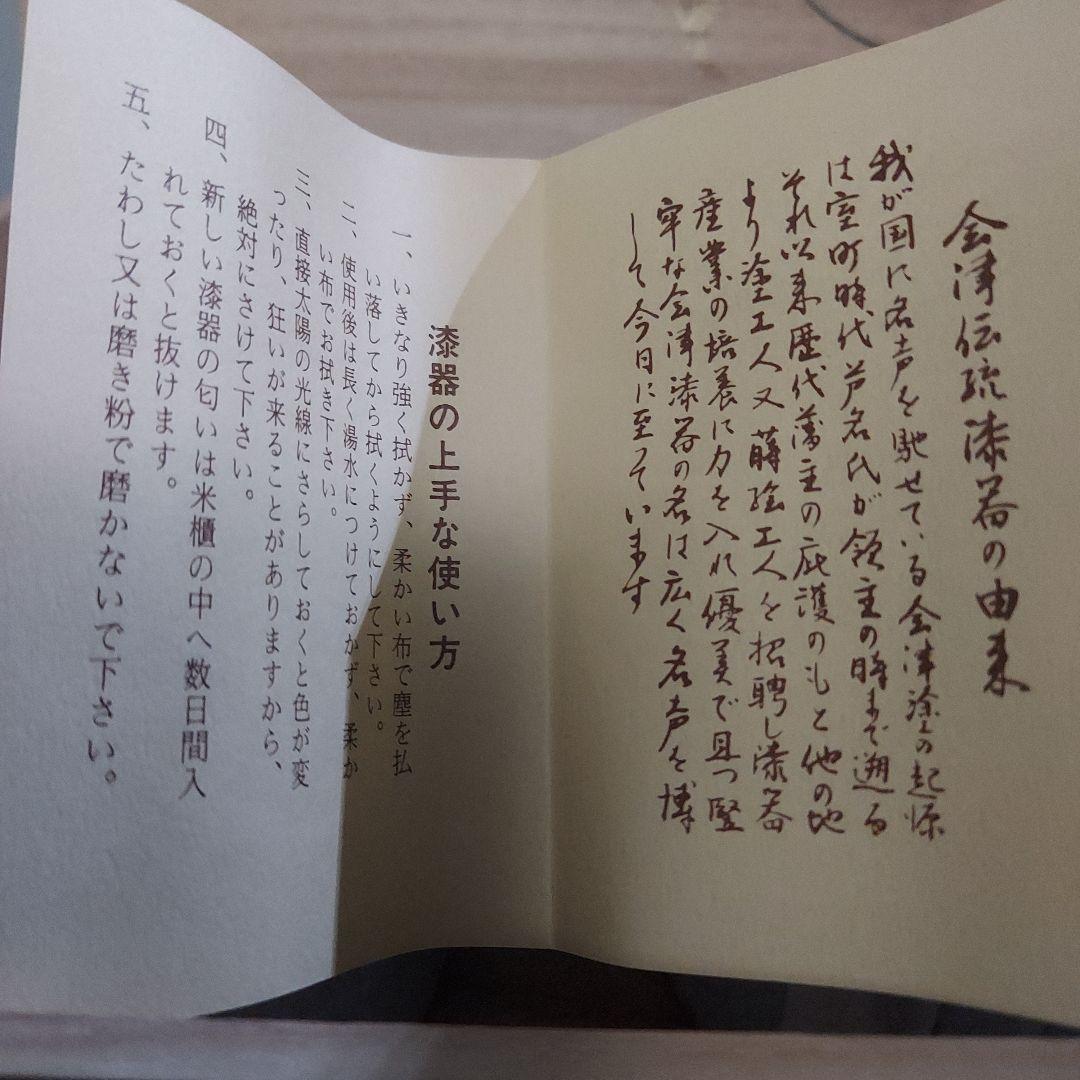 会津伝統漆器の由来
我が国に名声を馳せている会津塗の起源
は室町時代芦名氏が領主の時まで遡る
それ以来歴代藩主の庇護のもと他の地
より塗工人又蒔絵工人を招聘し漆器
産業の培養に力を入れ優美で且つ堅
牢な会津漆器の名は広く名声を博
して今日に至っています
漆器の上手な使い方
一、いきなり強く拭かず、柔かい布で塵を払
い落してから拭くようにして下さい。
二、使用後は長く湯水につけておかず、柔か
い布でお拭き下さい。
三、直接太陽の光線にさらしておくと色が変
ったり、狂いが来ることがありますから、
絶対にさけて下さい。
四、新しい漆器の匂いは米櫃の中へ数日間入
れておくと抜けます。
五、たわし又は磨き粉で磨かないで下さい。